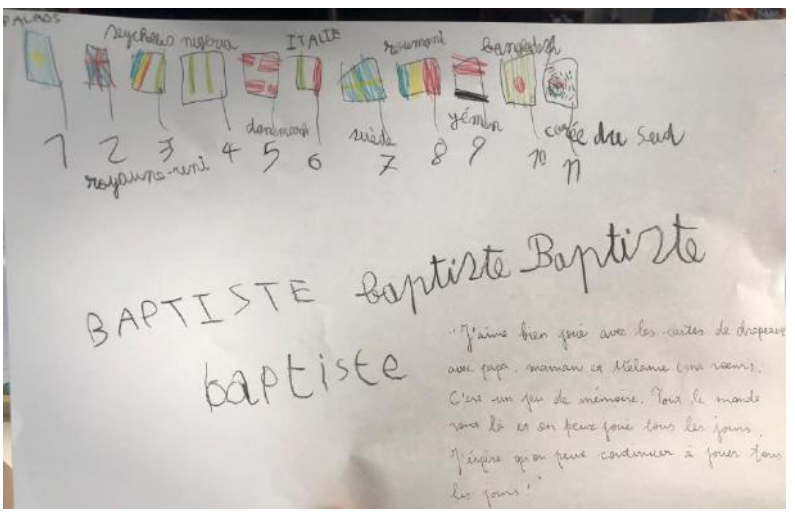 PALAOS
seychelles nigeria ITALIE roumani bangladesh
danemark suède yémen corée du sud
1 2 3 4 5 6 7 8 9 10 11
royaume-uni
BAPTISTE baptiste Baptiste
baptiste
"J'aime bien joué avec les cartes de drapeaux
avec papa, maman et Mélanie (ma soeur).
C'est un jeu de mémoire. Tout le monde
sont là et on peux joué tous les jours.
J'éspère qu'on peux continuer à jouer tous
les jours"